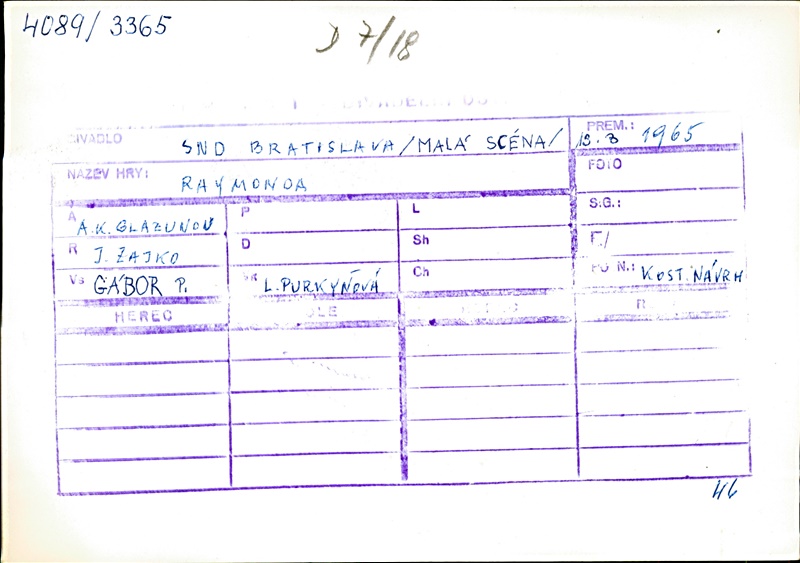 4089/3365
D 7/18
DIVADLO SND BRATISLAVA /MALÁ SCÉNA/ PREM.: 1965
NÁZEV HRY: RAYMONDA FOTO
A A.K. GLAZUNOV P L S.G.:
R J. ZAJKO D Sh
Vs GÁBOR P. L. PURKYŇOVÁ Ch KOST. NÁVRH
HEREC
46